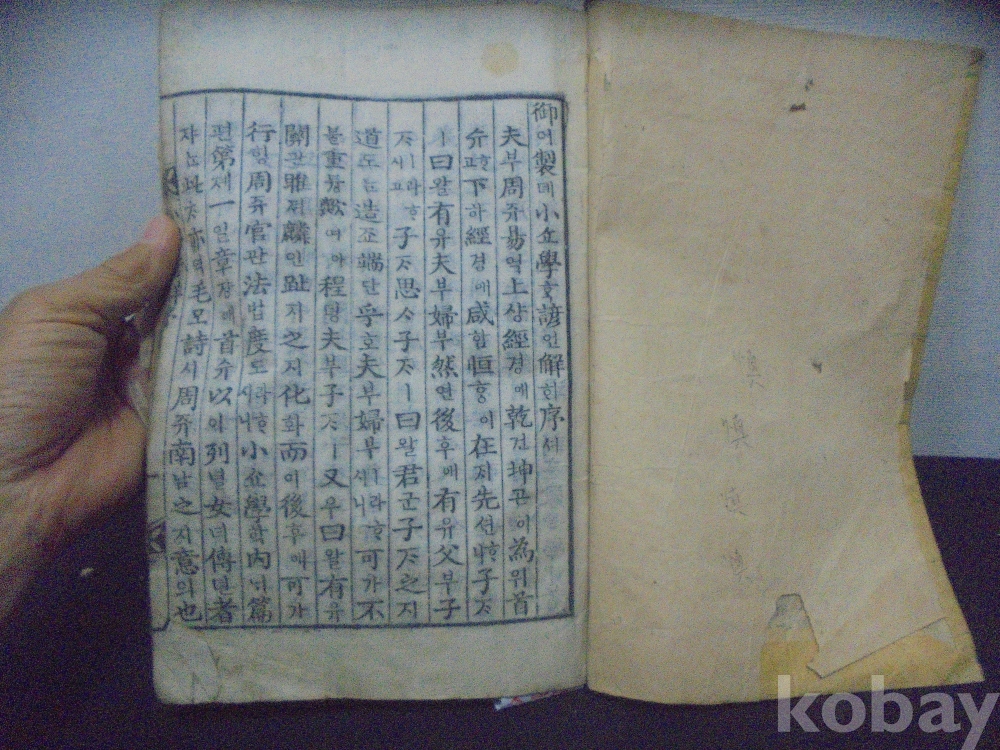 御어製졔小쇼學ᄒᆞᆨ諺언解ᄒᆡ序셔
夫부周쥬易역上샹經경에乾건坤곤이為위首
슈ᄒᆞ고下하經경에咸함恒ᄒᆞᆼ이在ᄌᆡ先션ᄒᆞ니子ᄌᆞ
ㅣ曰왈有유夫부婦부然연後후에有유父부子
ᄌᆞㅣ라ᄒᆞ시고子ᄌᆞ思ᄉᆞ子ᄌᆞㅣ曰왈君군子ᄌᆞ之지
道도ᄂᆞᆫ造조端단乎호夫부婦부ㅣ라ᄒᆞ시니可가不
블重듕歟여아程뎡夫부子ᄌᆞㅣ又우曰왈有유
關관雎져麟인趾지之지化화而이後후에可가
行ᄒᆡᆼ周쥬官관法법度도ㅣ라ᄒᆞ시니小쇼學ᄒᆞᆨ內ᄂᆡ篇
편第뎨一일章쟝에首슈以이列녈女녀傳뎐者
쟈ᄂᆞᆫ此ᄎᆞ亦역毛모詩시周쥬南남之지意의也
kobay